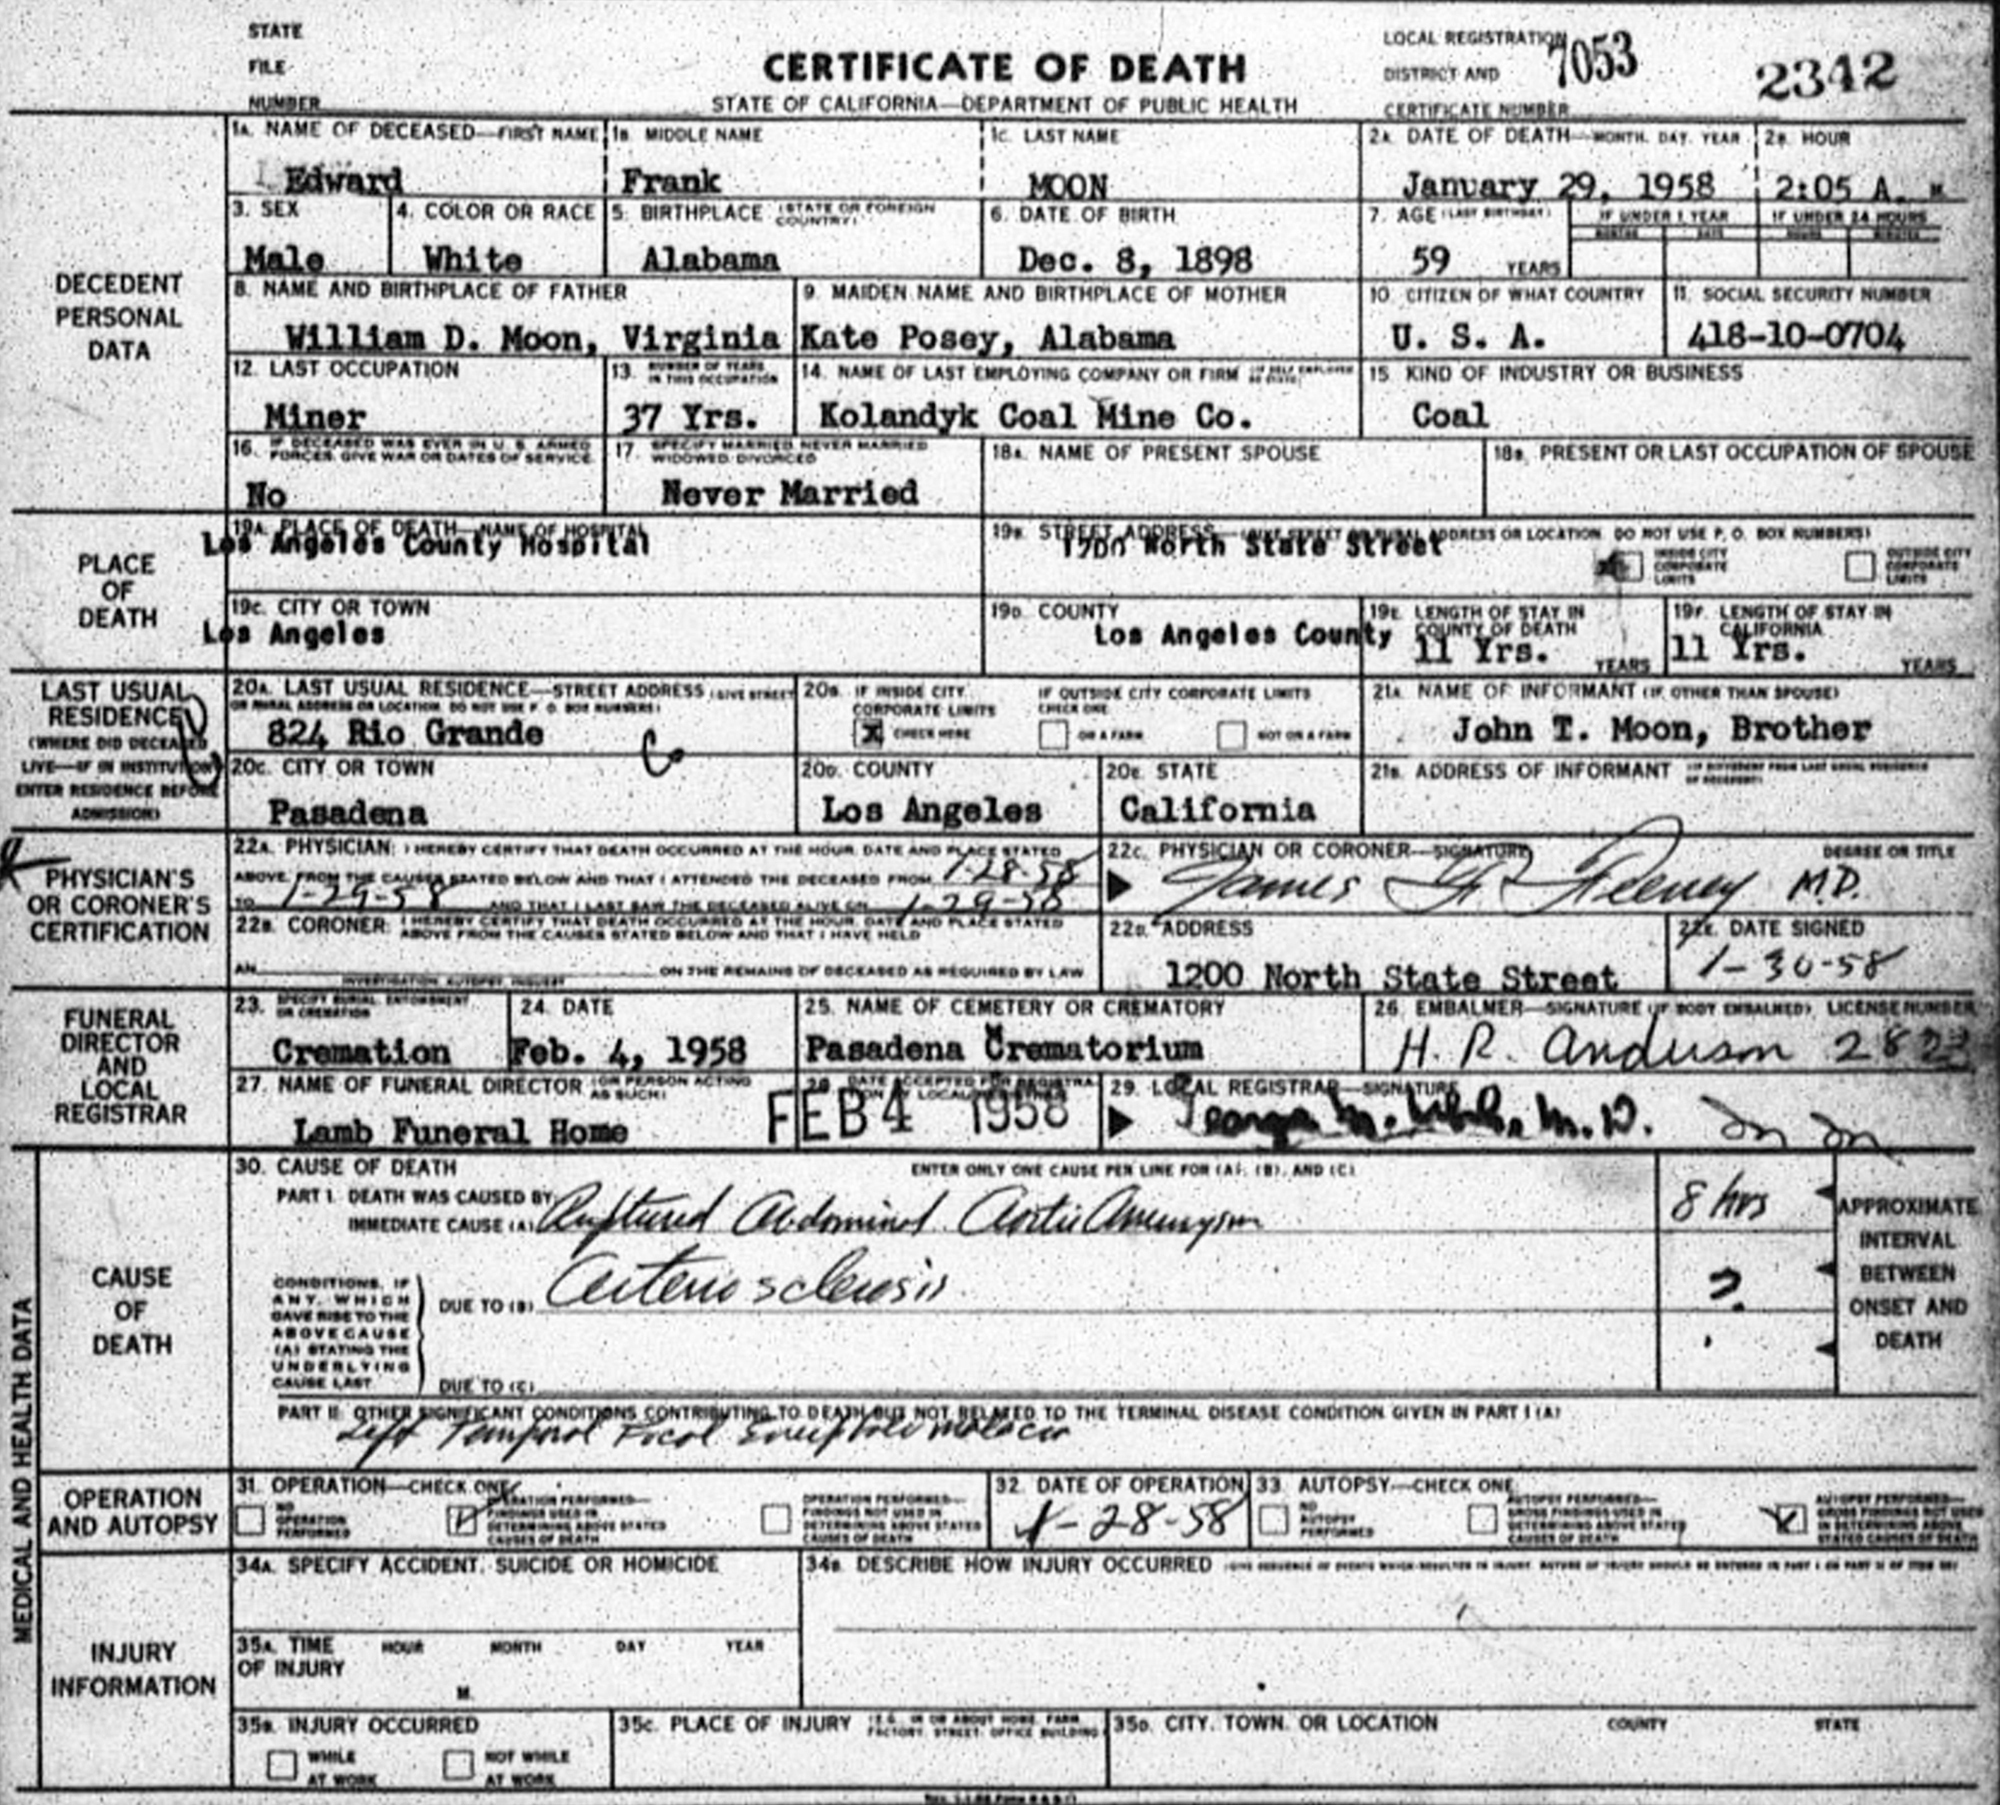 STATE
FILE
NUMBER
CERTIFICATE OF DEATH
STATE OF CALIFORNIA—DEPARTMENT OF PUBLIC HEALTH
LOCAL REGISTRATION
DISTRICT AND
CERTIFICATE NUMBER
7053
2342
DECEDENT
PERSONAL
DATA
1A. NAME OF DECEASED—FIRST NAME
Edward
1B. MIDDLE NAME
Frank
1C. LAST NAME
MOON
2A. DATE OF DEATH—MONTH, DAY, YEAR
January 29, 1958
2B. HOUR
2:05 A. M
3. SEX
Male
4. COLOR OR RACE
White
5. BIRTHPLACE (STATE OR FOREIGN COUNTRY)
Alabama
6. DATE OF BIRTH
Dec. 8, 1898
7. AGE (LAST BIRTHDAY)
59 YEARS
IF UNDER 1 YEAR
MONTHS DAYS
IF UNDER 24 HOURS
HOURS MINUTES
8. NAME AND BIRTHPLACE OF FATHER
William D. Moon, Virginia
9. MAIDEN NAME AND BIRTHPLACE OF MOTHER
Kate Posey, Alabama
10. CITIZEN OF WHAT COUNTRY
U. S. A.
11. SOCIAL SECURITY NUMBER
418-10-0704
12. LAST OCCUPATION
Miner
13. NUMBER OF YEARS IN THIS OCCUPATION
37 Yrs.
14. NAME OF LAST EMPLOYING COMPANY OR FIRM
Kolandyk Coal Mine Co.
15 KIND OF INDUSTRY OR BUSINESS
Coal
16. IF DECEASED WAS EVER IN U. S. ARMED FORCES, GIVE WAR OR DATES OF SERVICE
No
17. SPECIFY MARRIED, NEVER MARRIED WIDOWED, DIVORCED
Never Married
18A. NAME OF PRESENT SPOUSE
18B. PRESENT OR LAST OCCUPATION OF SPOUSE
PLACE
OF
DEATH
19A. PLACE OF DEATH—NAME OF HOSPITAL
Los Angeles County Hospital
19B. STREET ADDRESS—(GIVE STREET OR RURAL ADDRESS OR LOCATION. DO NOT USE P. O. BOX NUMBERS)
1200 North State Street
INSIDE CITY CORPORATE LIMITS
OUTSIDE CITY CORPORATE LIMITS
19C. CITY OR TOWN
Los Angeles
19D. COUNTY
Los Angeles County
19E. LENGTH OF STAY IN COUNTY OF DEATH
11 Yrs. YEARS
19F. LENGTH OF STAY IN CALIFORNIA
11 Yrs. YEARS
LAST USUAL
RESIDENCE
(WHERE DID DECEASED
LIVE—IF IN INSTITUTION
ENTER RESIDENCE BEFORE
ADMISSION)
20A. LAST USUAL RESIDENCE—STREET ADDRESS (GIVE STREET
OR RURAL ADDRESS OR LOCATION. DO NOT USE P. O. BOX NUMBERS)
824 Rio Grande
20B. IF INSIDE CITY CORPORATE LIMITS
X CHECK HERE
IF OUTSIDE CITY CORPORATE LIMITS
CHECK ONE
ON A FARM
NOT ON A FARM
21A. NAME OF INFORMANT (IF OTHER THAN SPOUSE)
John T. Moon, Brother
20C. CITY OR TOWN
Pasadena
20D. COUNTY
Los Angeles
20E. STATE
California
21B. ADDRESS OF INFORMANT
PHYSICIAN'S
OR CORONER'S
CERTIFICATION
22A. PHYSICIAN: I HEREBY CERTIFY THAT DEATH OCCURRED AT THE HOUR, DATE AND PLACE STATED
ABOVE, FROM THE CAUSES STATED BELOW AND THAT I ATTENDED THE DECEASED FROM 1-28-58
TO 1-29-58 AND THAT I LAST SAW THE DECEASED ALIVE ON 1-29-58
22B. CORONER: I HEREBY CERTIFY THAT DEATH OCCURRED AT THE HOUR, DATE AND PLACE STATED
ABOVE FROM THE CAUSES STATED BELOW AND THAT I HAVE HELD
AN ON THE REMAINS OF DECEASED AS REQUIRED BY LAW
INVESTIGATION, AUTOPSY, INQUEST
22C. PHYSICIAN OR CORONER—SIGNATURE DEGREE OR TITLE
James Feeney M.D.
22D. ADDRESS
1200 North State Street
22E. DATE SIGNED
1-30-58
FUNERAL
DIRECTOR
AND
LOCAL
REGISTRAR
23. SPECIFY BURIAL, ENTOMBMENT OR CREMATION
Cremation
24. DATE
Feb. 4, 1958
25. NAME OF CEMETERY OR CREMATORY
Pasadena Crematorium
26. EMBALMER—SIGNATURE (IF BODY EMBALMED) LICENSE NUMBER
H. R. Anderson
27. NAME OF FUNERAL DIRECTOR (OR PERSON ACTING AS SUCH)
Lamb Funeral Home
28. DATE ACCEPTED FOR REGISTRATION BY LOCAL REGISTRAR
FEB 4 1958
29. LOCAL REGISTRAR—SIGNATURE
George M. Uhl, M.D.
MEDICAL AND HEALTH DATA
CAUSE
OF
DEATH
30. CAUSE OF DEATH
ENTER ONLY ONE CAUSE PER LINE FOR (A), (B), AND (C)
PART I. DEATH WAS CAUSED BY:
IMMEDIATE CAUSE (A) Ruptured Abdominal Aortic Aneurysm
8 hrs
CONDITIONS, IF
ANY, WHICH
GAVE RISE TO THE
ABOVE CAUSE
(A) STATING THE
UNDERLYING
CAUSE LAST
DUE TO (B) Arteriosclerosis
?
DUE TO (C)
APPROXIMATE
INTERVAL
BETWEEN
ONSET AND
DEATH
PART II: OTHER SIGNIFICANT CONDITIONS CONTRIBUTING TO DEATH BUT NOT RELATED TO THE TERMINAL DISEASE CONDITION GIVEN IN PART I (A)
Left Temporal Focal Encephalomalacia
OPERATION
AND AUTOPSY
31. OPERATION—CHECK ONE
NO OPERATION PERFORMED
OPERATION PERFORMED—FINDINGS USED IN DETERMINING ABOVE STATED CAUSES OF DEATH
OPERATION PERFORMED—FINDINGS NOT USED IN DETERMINING ABOVE STATED CAUSES OF DEATH
32. DATE OF OPERATION
1-28-58
33. AUTOPSY—CHECK ONE
NO AUTOPSY PERFORMED
AUTOPSY PERFORMED—GROSS FINDINGS USED IN DETERMINING ABOVE STATED CAUSES OF DEATH
AUTOPSY PERFORMED—GROSS FINDINGS NOT USED IN DETERMINING ABOVE STATED CAUSES OF DEATH
INJURY
INFORMATION
34A. SPECIFY ACCIDENT, SUICIDE OR HOMICIDE
34B. DESCRIBE HOW INJURY OCCURRED
35A. TIME OF INJURY
HOUR MONTH DAY YEAR
M.
35B. INJURY OCCURRED
WHILE AT WORK
NOT WHILE AT WORK
35C. PLACE OF INJURY (E.G., IN OR ABOUT HOME, FARM, FACTORY, STREET, OFFICE BUILDING)
35D. CITY, TOWN, OR LOCATION COUNTY STATE